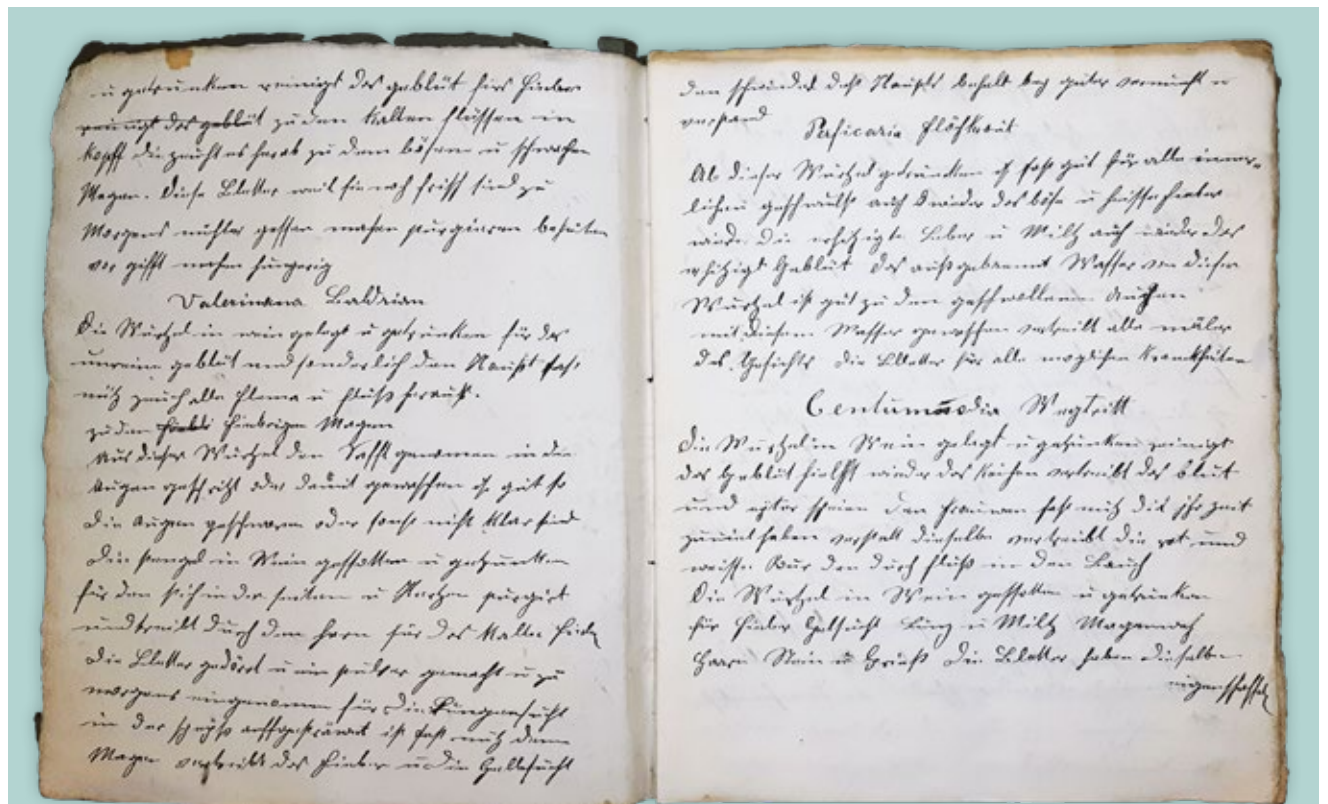 u getruncken reinigt das geblüt fürs Fieber
reinigt das geblüt zu den Kalten flüssen im
Kopff die zeucht es herab zu dem bösen u schwachen
Magen. Diese Bletter weil sie noch frisch sind zu
Morgens nüchter gessen machen purgieren behüten
vor gifft machen hungerig
Valeriana Baldrian
Die Wurtzel in wein gelegt u getruncken für das
unreine geblüt und sonderlich dem Haupt fast
nütz zeuch alle flema u fluss herauss.
zu den Fiebrigen Magen
Aus dieser Wurtzel den Safft genomen in die
Augen gespritzt oder damit gewaschen ist gut so
die Augen geschworen oder sonst nicht Klar sind
Die stengel in Wein gesotten u getruncken
für den stich in der seiten u Hertzen purgirt
und treibt durch den harn für das Kalte Fieber
Die Bletter gedörrt u ein pulver gemacht u zu
morgens eingenomen für die Lungensucht
in der speyss auffgestrawet ist fast nütz dem
Magen vertreibt das Fieber u die Gelbsucht
den schwindel dess Haupts behalt bey guter vernunfft u
verstand
Persicaria Flöhkraut
Ab dieser Wurtzel getruncken ist fast gut für alle inner-
lichen geschwulst auch wieder das böse u heisse fieber
wieder die erhitzigte Leber u Miltz auch wieder das
erhitzigt Geblüt Das aussgebrennt Wasser von dieser
Wurtzel ist gut zu den geschwollenen Augen
mit diesem Wasser gewaschen vertreibt alle mäler
des Gesichts Die Bletter für alle möglichen Kranckheiten
Centumnodia Wegtritt
Die Wurtzel in Wein gelegt u getruncken reinigt
das Geblüt hielfft wieder das Keichen vertreibt das blut
und eyter speien den Frauwen fast nütz die ihr zeit
zuviel haben verstelt dieselbe vertreibt die rot und
weisse Ruhr den durchfluss in den Bauch
Die Wurtzel in Wein gesotten u getruncken
für Fieber Gelbsucht Lung u Miltz Magenweh
Harn Stein u Griess Die Bletter haben dieselben
eigenschafften